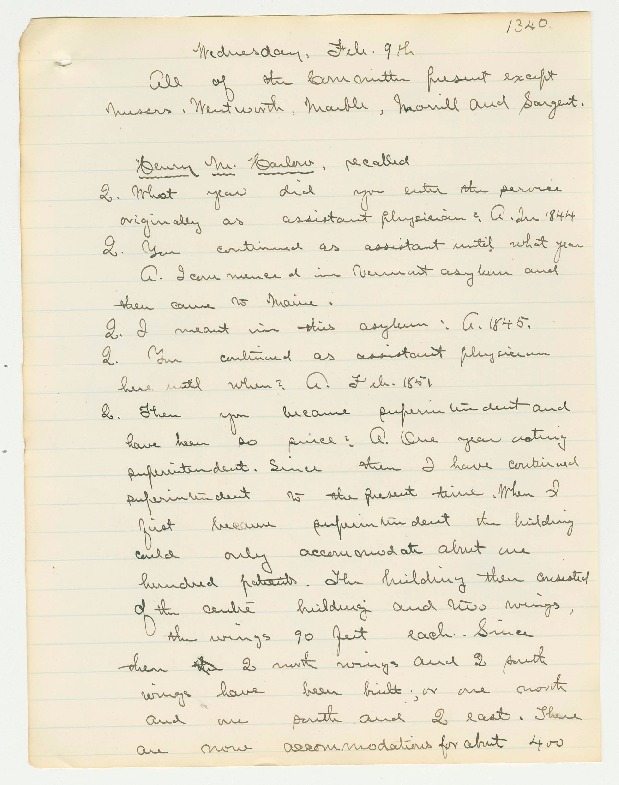 1340.
Wednesday, Feb. 9th
All of the Committee present except
Messrs. Wentworth, Marble, Morrill and Sargent.
Henry M. Harlow, recalled
Q. What year did you enter the service
originally as assistant physician? A. In 1844
Q. You continued as assistant until what year
A. I commenced in Vermont asylum and
then came to Maine.
Q. I meant in this asylum? A. 1845.
Q. You continued as assistant physician
here until when? A. Feb. 1851
Q. Then you became superintendent and
have been so since? A. One year acting
superintendent. Since then I have continued
superintendent to the present time. When I
first became superintendent the building
could only accommodate about one
hundred patients. The building then consisted
of the centre building and two wings,
the wings 90 feet each. Since
then 2 north wings and 2 south
wings have been built; or one north
and one south and 2 east. There
are now accommodations for about 400